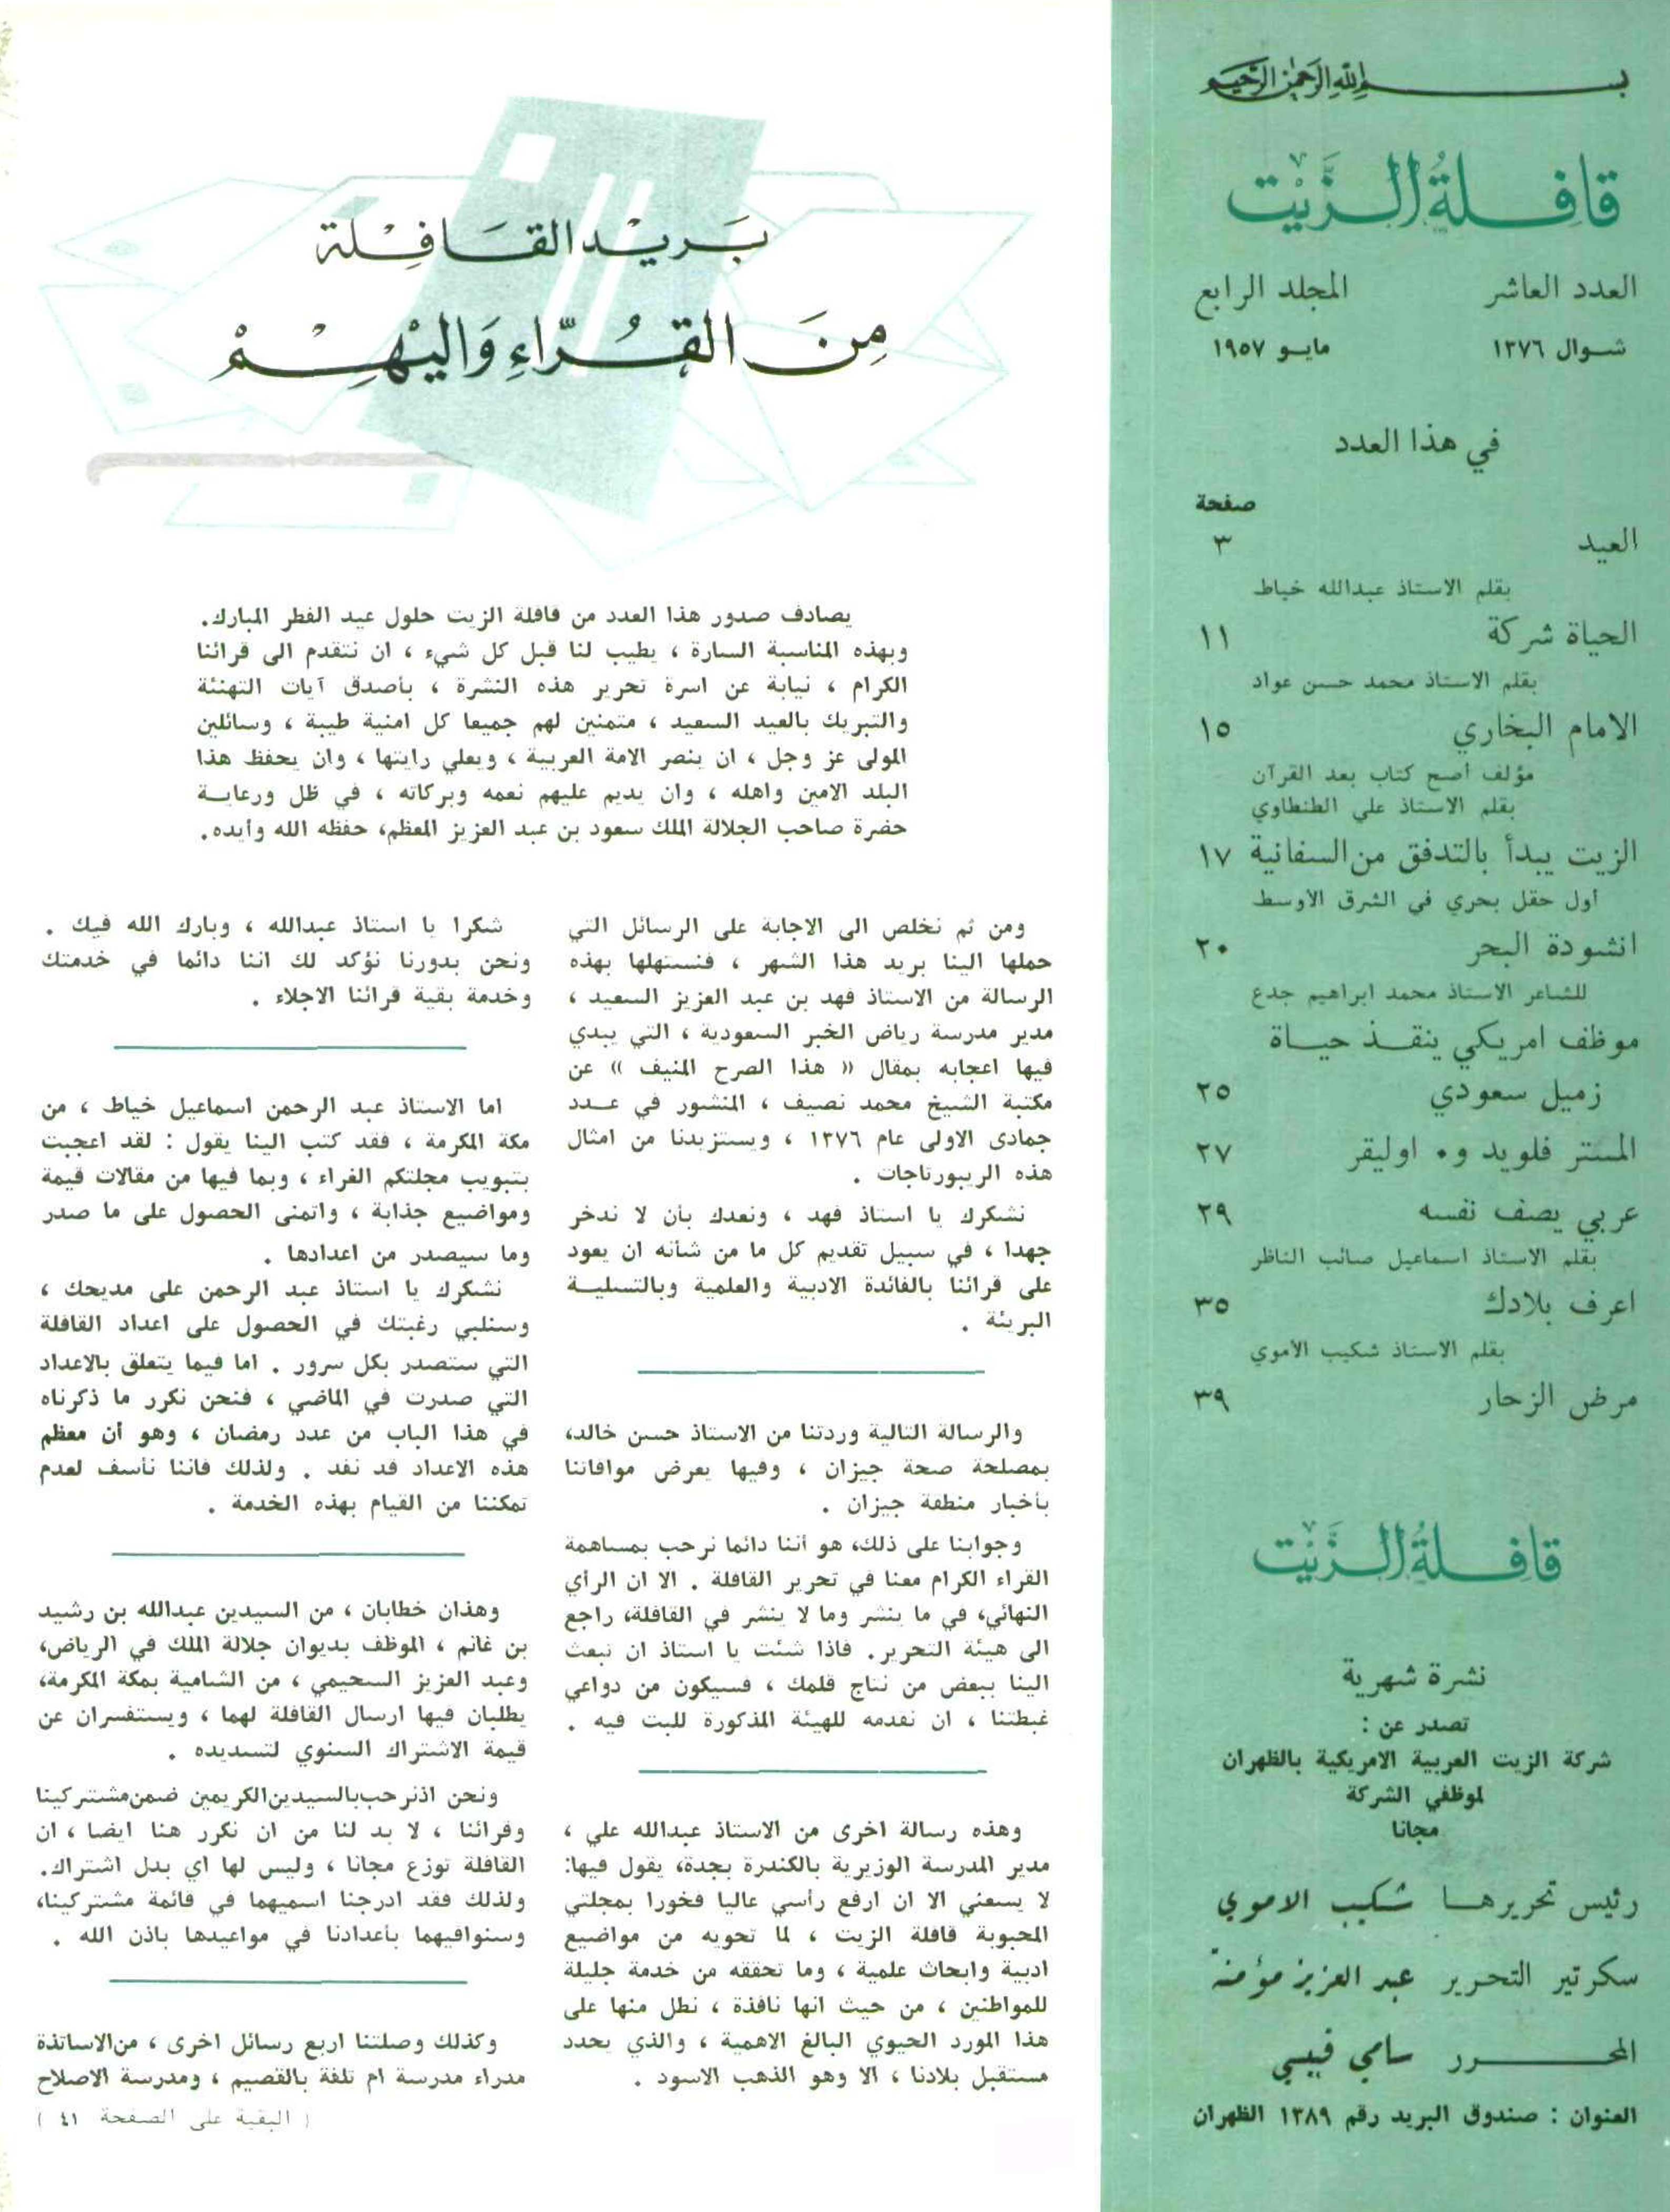 بسم الله الرحمن الرحيم
قافلة الزيت
العدد العاشر المجلد الرابع
شوال ١٣٧٦ مايو ١٩٥٧
في هذا العدد
صفحة
العيد ٣
بقلم الاستاذ عبدالله خياط
الحياة شركة ١١
بقلم الاستاذ محمد حسن عواد
الامام البخاري ١٥
مؤلف أصح كتاب بعد القرآن
بقلم الاستاذ علي الطنطاوي
الزيت يبدأ بالتدفق من السفانية ١٧
أول حقل بحري في الشرق الاوسط
انشودة البحر ٢٠
للشاعر الاستاذ محمد ابراهيم جدع
موظف امريكي ينقذ حياة
زميل سعودي ٢٥
المستر فلويد و٠ اوليقر ٢٧
عربي يصف نفسه ٢٩
بقلم الاستاذ اسماعيل صائب الناظر
اعرف بلادك ٣٥
بقلم الاستاذ شكيب الاموي
مرض الزحار ٣٩
قافلة الزيت
نشرة شهرية
تصدر عن :
شركة الزيت العربية الامريكية بالظهران
لموظفي الشركة
مجانا
رئيس تحريرها شكيب الاموي
سكرتير التحرير عبد العزيز مؤمنة
المحرر سامي قبيسي
العنوان : صندوق البريد رقم ١٣٨٩ الظهران
بَريْد القَافِلة
مِنَ القُرّاءِ وَاليْهِمْ
يصادف صدور هذا العدد من قافلة الزيت حلول عيد الفطر المبارك.
وبهذه المناسبة السارة ، يطيب لنا قبل كل شيء ، ان نتقدم الى قرائنا
الكرام ، نيابة عن اسرة تحرير هذه النشرة ، بأصدق آيات التهنئة
والتبريك بالعيد السعيد ، متمنين لهم جميعا كل امنية طيبة ، وسائلين
المولى عز وجل ، ان ينصر الامة العربية ، ويعلي رايتها ، وان يحفظ هذا
البلد الامين واهله ، وان يديم عليهم نعمه وبركاته ، في ظل ورعاية
حضرة صاحب الجلالة الملك سعود بن عبد العزيز المعظم، حفظه الله وأيده.
ومن ثم نخلص الى الاجابة على الرسائل التي
حملها الينا بريد هذا الشهر ، فنستهلها بهذه
الرسالة من الاستاذ فهد بن عبد العزيز السعيد ،
مدير مدرسة رياض الخبر السعودية ، التي يبدي
فيها اعجابه بمقال « هذا الصرح المنيف » عن
مكتبة الشيخ محمد نصيف ، المنشور في عدد
جمادى الاولى عام ١٣٧٦ ، ويستزيدنا من امثال
هذه الريبورتاجات .
نشكرك يا استاذ فهد ، ونعدك بأن لا ندخر
جهدا ، في سبيل تقديم كل ما من شأنه ان يعود
على قرائنا بالفائدة الادبية والعلمية وبالتسلية
البريئة .
والرسالة التالية وردتنا من الاستاذ حسن خالد،
بمصلحة صحة جيزان ، وفيها يعرض موافاتنا
بأخبار منطقة جيزان .
وجوابنا على ذلك، هو أننا دائما نرحب بمساهمة
القراء الكرام معنا في تحرير القافلة . الا ان الرأي
النهائي، في ما ينشر وما لا ينشر في القافلة، راجع
الى هيئة التحرير. فاذا شئت يا استاذ ان تبعث
الينا ببعض من نتاج قلمك ، فسيكون من دواعي
غبطتنا ، ان نقدمه للهيئة المذكورة للبت فيه .
وهذه رسالة اخرى من الاستاذ عبدالله علي ،
مدير المدرسة الوزيرية بالكندرة بجدة، يقول فيها:
لا يسعني الا ان ارفع رأسي عاليا فخورا بمجلتي
المحبوبة قافلة الزيت ، لما تحويه من مواضيع
ادبية وابحاث علمية ، وما تحققه من خدمة جليلة
للمواطنين ، من حيث انها نافذة ، نطل منها على
هذا المورد الحيوي البالغ الاهمية ، والذي يحدد
مستقبل بلادنا ، الا وهو الذهب الاسود .
شكرا يا استاذ عبدالله ، وبارك الله فيك .
ونحن بدورنا نؤكد لك اننا دائما في خدمتك
وخدمة بقية قرائنا الاجلاء .
اما الاستاذ عبد الرحمن اسماعيل خياط ، من
مكة المكرمة ، فقد كتب الينا يقول : لقد اعجبت
بتبويب مجلتكم الغراء ، وبما فيها من مقالات قيمة
ومواضيع جذابة ، واتمنى الحصول على ما صدر
وما سيصدر من اعدادها .
نشكرك يا استاذ عبد الرحمن على مديحك ،
وسنلبي رغبتك في الحصول على اعداد القافلة
التي ستصدر بكل سرور . اما فيما يتعلق بالاعداد
التي صدرت في الماضي ، فنحن نكرر ما ذكرناه
في هذا الباب من عدد رمضان ، وهو أن معظم
هذه الاعداد قد نفد . ولذلك فاننا نأسف لعدم
تمكننا من القيام بهذه الخدمة .
وهذان خطابان ، من السيدين عبدالله بن رشيد
بن غانم ، الموظف بديوان جلالة الملك في الرياض،
وعبد العزيز السحيمي ، من الشامية بمكة المكرمة،
يطلبان فيها ارسال القافلة لهما ، ويستفسران عن
قيمة الاشتراك السنوي لتسديده .
ونحن اذ نرحب بالسيدين الكريمين ضمن مشتركينا
وقرائنا ، لا بد لنا من ان نكرر هنا ايضا ، ان
القافلة توزع مجانا ، وليس لها اي بدل اشتراك.
ولذلك فقد ادرجنا اسميهما في قائمة مشتركينا،
وسنوافيهما بأعدادنا في مواعيدها باذن الله .
وكذلك وصلتنا اربع رسائل اخرى ، من الاساتذة
مدراء مدرسة ام تلفة بالقصيم ، ومدرسة الاصلاح
( البقية على الصفحة ٤١ )